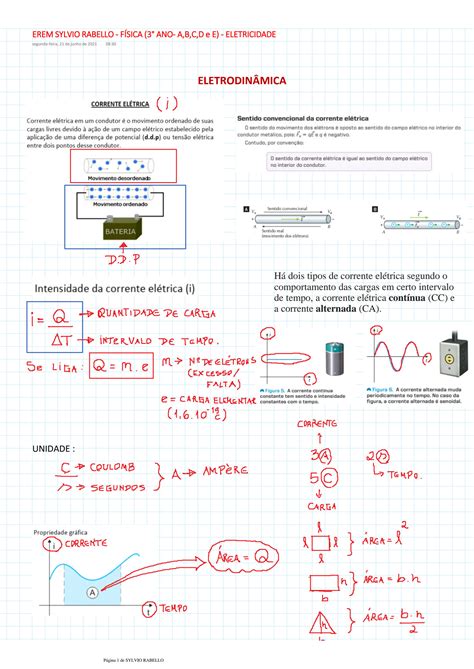 EREM SYLVIO RABELLO - FÍSICA (3° ANO- A,B,C,D e E) - ELETRICIDADE
segunda-feira, 21 de junho de 2021
ELETRODINÂMICA
CORRENTE ELÉTRICA (i)
Corrente elétrica em um condutor é o movimento ordenado de suas
cargas livres devido à ação de um campo elétrico estabelecido pela
aplicação de uma diferença de potencial (d.d.p) ou tensão elétrica
entre dois pontos desse condutor.
Movimento desordenado
Movimento ordenado
BATERIA
D.D.P
Sentido convencional da corrente elétrica
O sentido do movimento dos elétrons é oposto ao sentido do campo elétrico no interior do
condutor metálico, pois: F = qE e q é negativo.
Contudo, por convenção:
O sentido da corrente elétrica é igual ao sentido do campo elétrico
no interior do condutor.
A
Sentido convencional
Sentido real
(movimento dos elétrons)
A B
B
A B
Há dois tipos de corrente elétrica segundo o
comportamento das cargas em certo intervalo
de tempo, a corrente elétrica contínua (CC) e
a corrente alternada (CA).
Intensidade da corrente elétrica (i)
i = Q → QUANTIDADE DE CARGA
ΔT → INTERVALO DE TEMPO.
SE LIGA: Q = m.e
m → Nº DE ELÉTRONS
(EXCESSO/
FALTA)
e = CARGA ELEMENTAR
(1,6.10⁻¹⁹C)
Figura 5. A corrente contínua
constante tem sentido e intensidade
constantes com o tempo.
Figura 5. A corrente alternada muda
periodicamente no tempo. No caso da
figura, a corrente alternada é senoidal.
UNIDADE :
C → COULOMB
s → SEGUNDOS
A → AMPÈRE
CORRENTE
3A 2s
5C TEMPO.
CARGA
Propriedade gráfica
i CORRENTE
A
t TEMPO
ÁREA = Q
l l ÁREA = l²
h ÁREA = b.h
b
h ÁREA = b.h
2
b
Página 1 de SYLVIO RABELLO